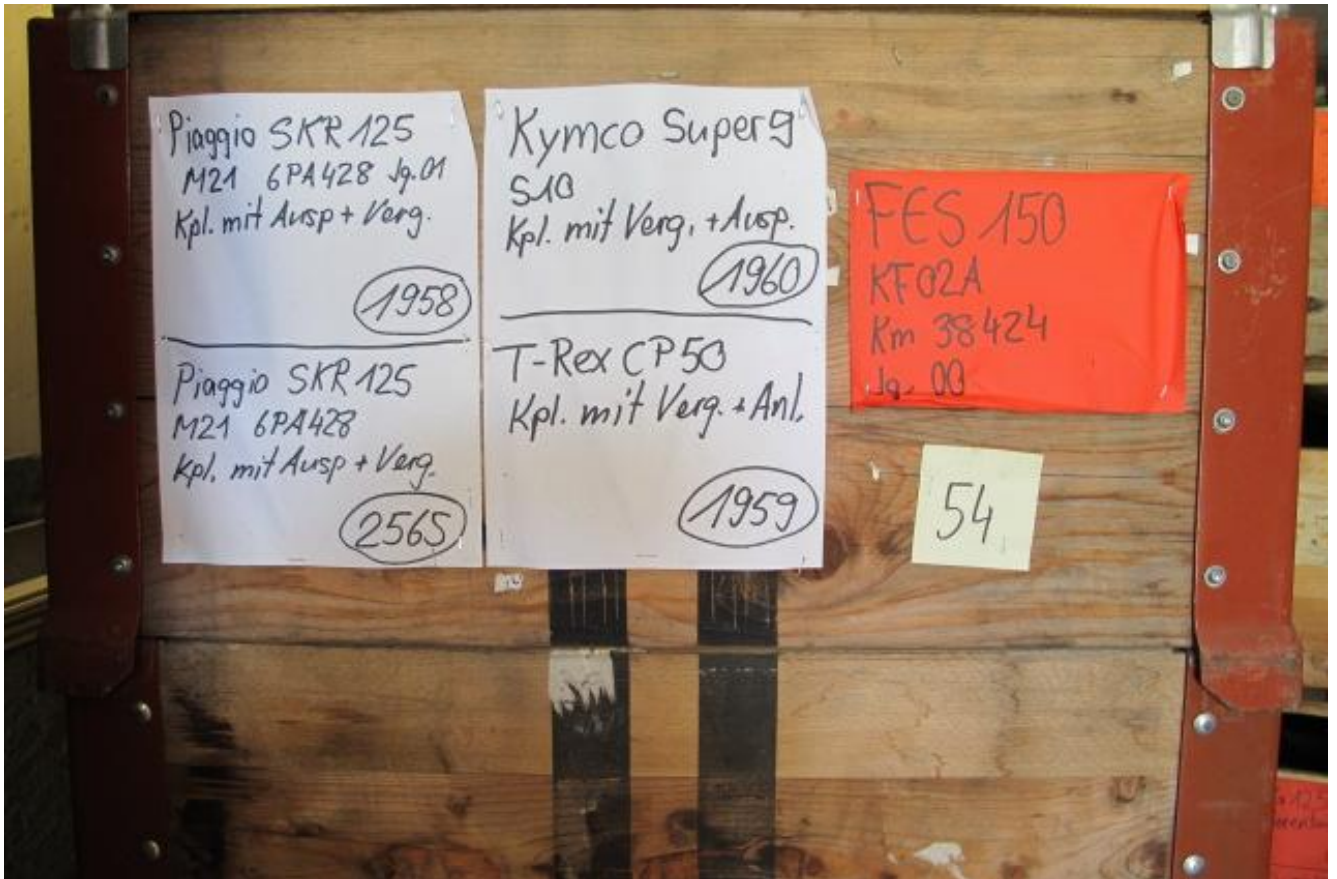 Piaggio SKR 125
M21 6PA428 Jg.01
Kpl. mit Ausp + Verg.
1958
Piaggio SKR 125
M21 6PA428
Kpl. mit Ausp + Verg.
2565
Kymco Super9
S10
Kpl. mit Verg. + Ausp.
1960
T-Rex CP50
Kpl. mit Verg. + Anl.
1959
FES 150
KF02A
Km 38424
Jg. 00
54